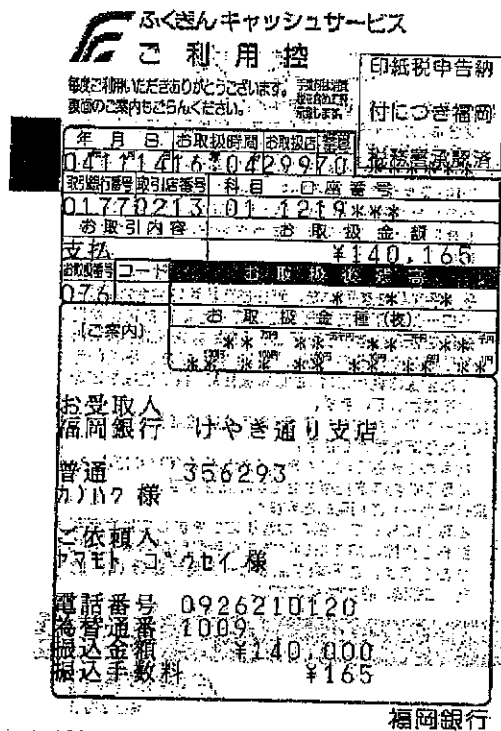 ふくぎんキャッシュサービス
ご利用控
毎度ご利用いただきありがとうございます。
裏面のご案内もごらんください。
印紙税申告納
付につき福岡
税務署承認済
年月日 お取扱時間 お取扱店
041114 16 04 29970
取引銀行番号 取引店番号 科目 口座番号
0177 0213 01 1219***
お取引内容 お取扱金額
支払 ¥140,165
お取扱番号 コード お取扱後残高
076
お取扱金種(枚)
[ご案内]
お受取人
福岡銀行 けやき通り支店
普通 356293
カ)ハク 様
ご依頼人
ヤマモト コウセイ 様
電話番号 0926210120
為替通番 1009
振込金額 ¥140,000
振込手数料 ¥165
福岡銀行